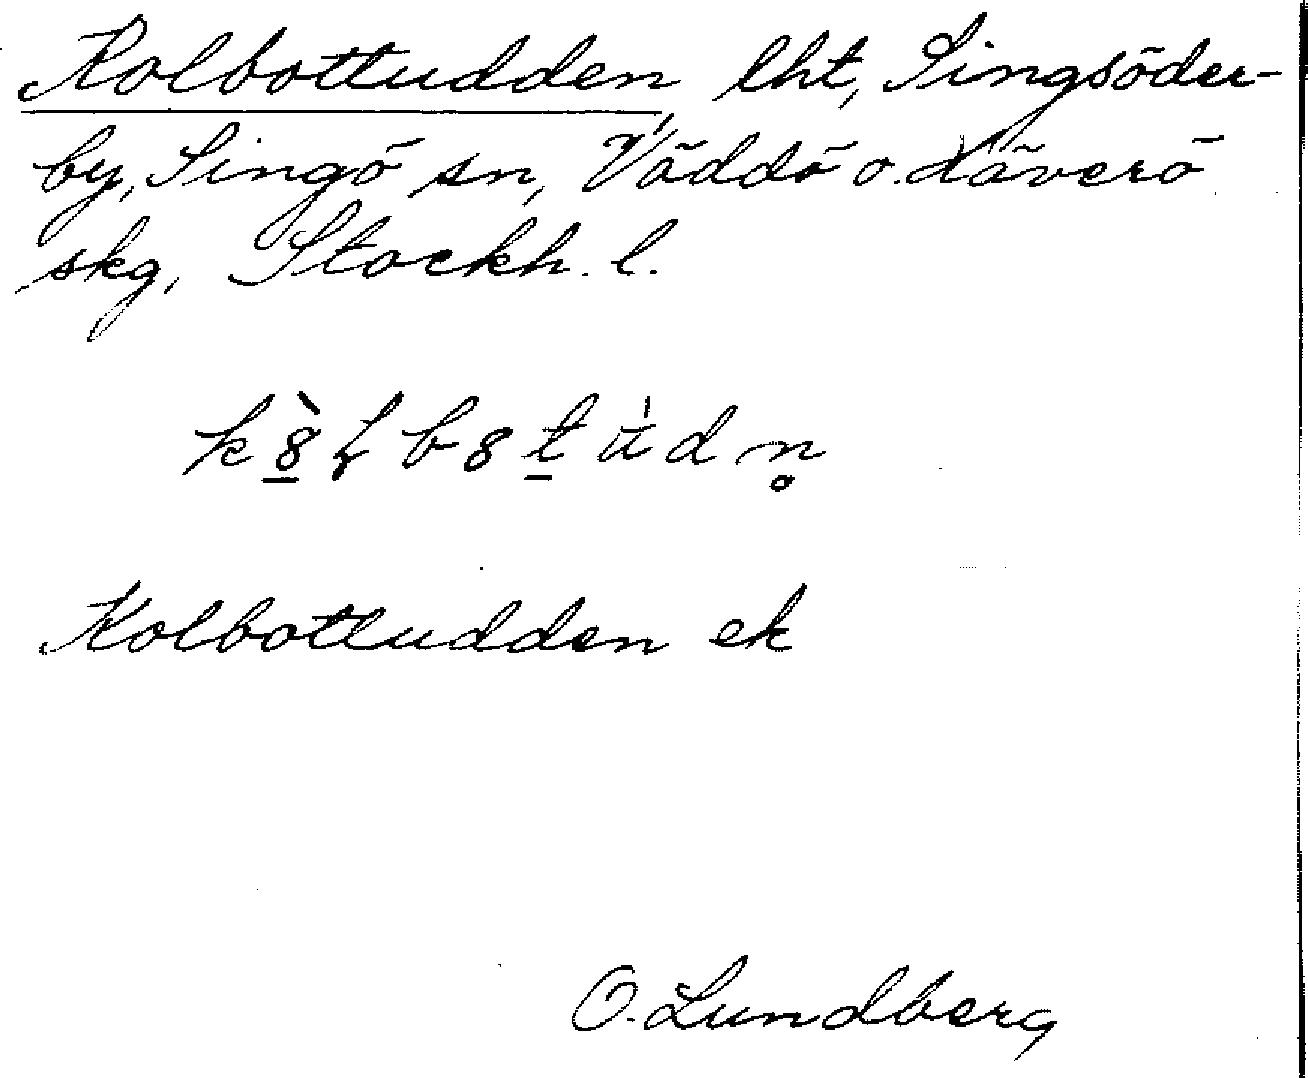 Kolbottudden, lht, Singsöder-
by, Singö sn, Väddö o. Häverö
skg, Stockh. l.
k8̱̀ɽb8ṯu̍dn̥
Kolbottudden ek
O. Lundberg